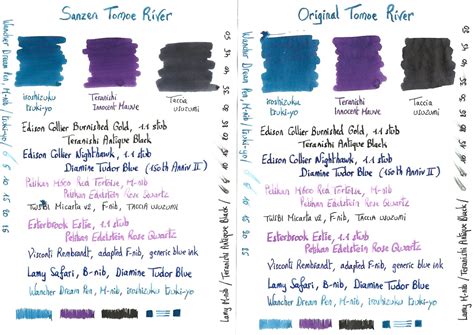 Sanzen Tomoe River
iroshizuku
tsuki-yo
Teranishi
Innocent Mauve
Taccia
usuzumi
Edison Collier Burnished Gold, 1.1 stub
Teranishi Antique Black
Edison Collier Nighthawk, 1.1 stub
Diamine Tudor Blue (150th Anniv II)
Pelikan M600 Red Tortoise, M-nib
Pelikan Edelstein Rose Quartz
TWSBI Micarta v2, F-nib, Taccia usuzumi
Esterbrook Estie, 1.1 stub
Pelikan Edelstein Rose Quartz
Visconti Rembrandt, adapted F-nib, generic blue ink
Lamy Safari, B-nib, Diamine Tudor Blue
Wancher Dream Pen, M-nib, iroshizuku tsuki-yo
Wancher Dream Pen, M-nib / tsuki-yo / 5 10 15 20 25
Lamy M-nib / Teranishi Antique Black / 5 10 15 20 25 30 35 40 45 50
Original Tomoe River
iroshizuku
tsuki-yo
Teranishi
Innocent Mauve
Taccia
usuzumi
Edison Collier Burnished Gold, 1.1 stub
Teranishi Antique Black
Edison Collier Nighthawk, 1.1 stub
Diamine Tudor Blue (150th Anniv II)
Pelikan M600 Red Tortoise, M-nib
Pelikan Edelstein Rose Quartz
TWSBI Micarta v2, F-nib, Taccia usuzumi
Esterbrook Estie, 1.1 stub
Pelikan Edelstein Rose Quartz
Visconti Rembrandt, adapted F-nib, generic blue ink
Lamy Safari, B-nib, Diamine Tudor Blue
Wancher Dream Pen, M-nib, iroshizuku tsuki-yo
Wancher Dream Pen, M-nib / tsuki-yo / 5 10 15 20 25
Lamy M-nib / Teranishi Antique Black / 5 10 15 20 25 30 35 40 45 50